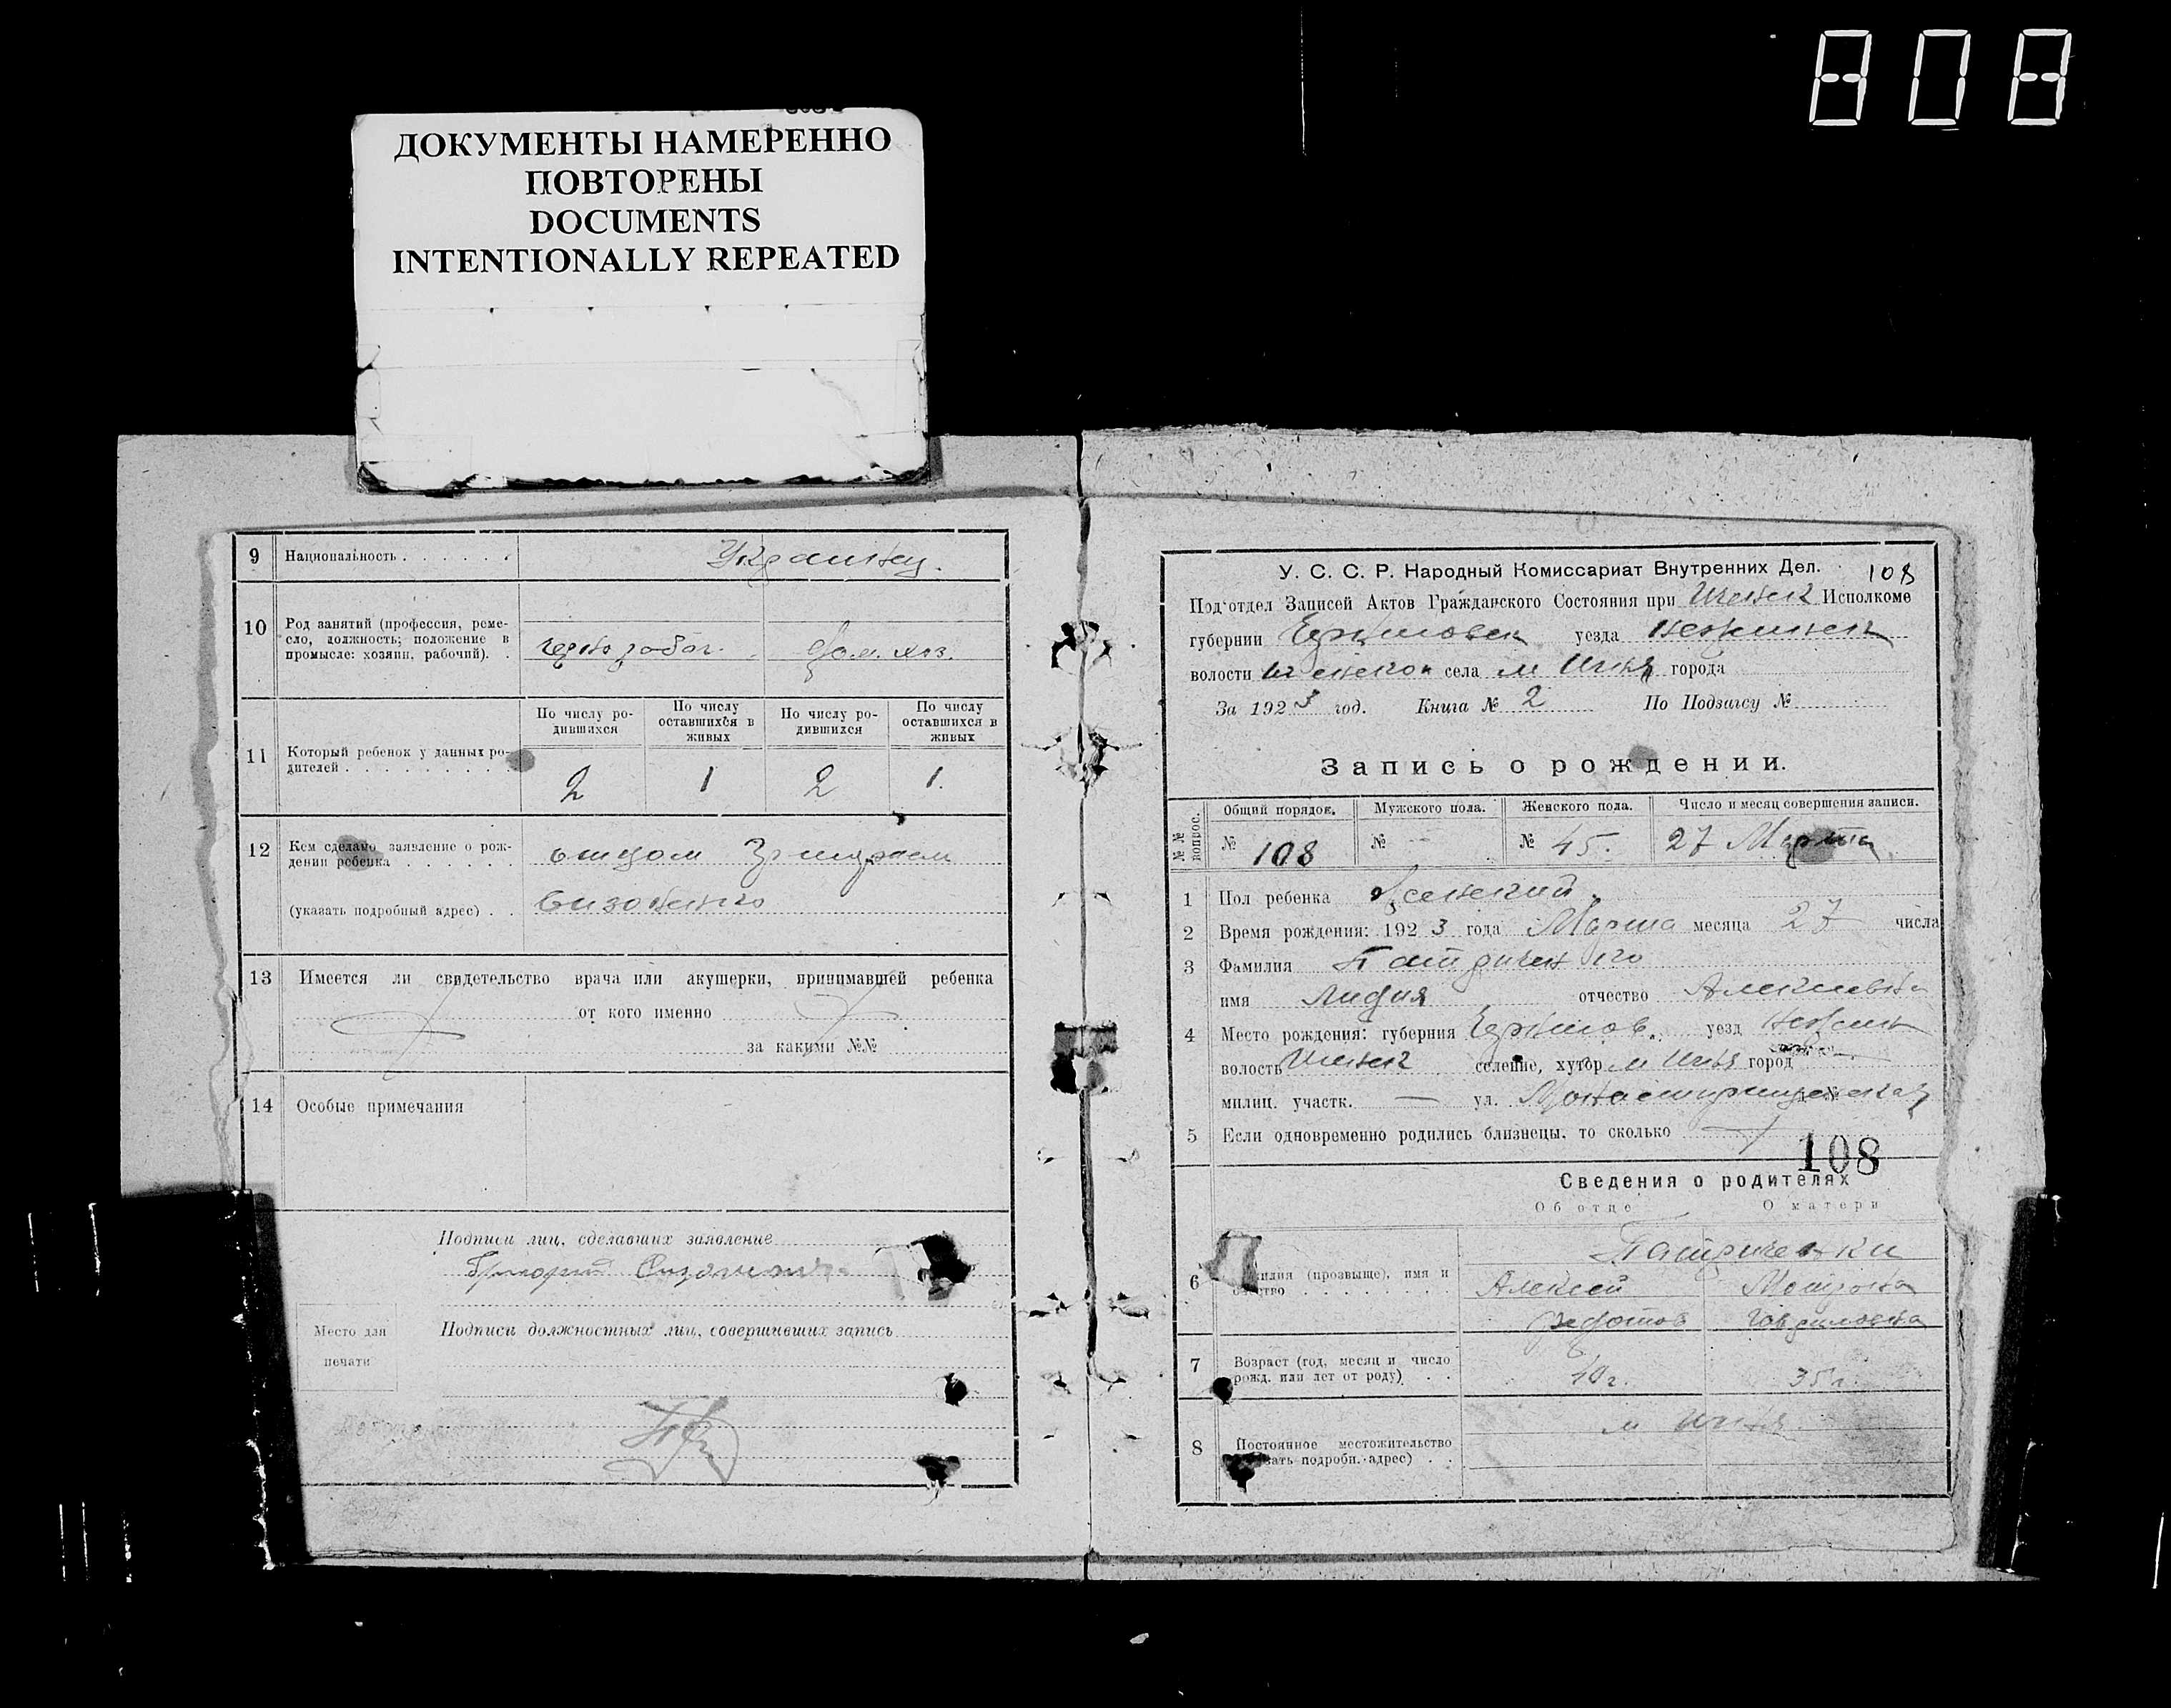 808
ДОКУМЕНТЫ НАМЕРЕННО
ПОВТОРЕНЫ
DOCUMENTS
INTENTIONALLY REPEATED
9 Национальность . . . . . . Украинцы.
10 Род занятий (профессия, реме-
сло, должность; положение в
промысле: хозяин, рабочий). . чернораб. дом. хоз.
11 Который ребенок у данных ро-
дителей . . . . . . . . .
По числу ро-
дившихся
По числу
оставшихся в
живых
По числу ро-
дившихся
По числу
оставшихся в
живых
2 1 2 1.
12 Кем сделано заявление о рож-
дении ребенка . . . . . .
(указать подробный адрес) . .
13 Имеется ли свидетельство врача или акушерки, принимавшей ребенка
от кого именно
за какими №№
14 Особые примечания
Подписи лиц, сделавших заявление
Григорий
Место для
печати
Подписи должностных лиц, совершивших запись
У. С. С. Р. Народный Комиссариат Внутренних Дел. 108
Подотдел Записей Актов Гражданского Состояния при Ичнянск Исполкоме
губернии Черниговск уезда Нежинск
волости Ичнянской села м Ичня города
За 1923 год. Книга № 2 По Подзагсу №
Запись о рождении.
№№ вопрос.
Общий порядок. Мужского пола. Женского пола. Число и месяц совершения записи.
№ 108 № - № 45. 27 Марта
1 Пол ребенка Женский.
2 Время рождения: 1923 года Марта месяца 27 числа
3 Фамилия Патриченко
имя Лидия отчество Алексеевна
4 Место рождения: губерния Чернигов. уезд Нежин
волость Ичнянск селение, хутор м Ичня город
милиц. участк. — ул.
5 Если одновременно родились близнецы, то сколько
108
Сведения о родителях
Об отце О матери
6 Фамилия (прозвыще), имя и
отчество . . . . . . . .
Патриченки
Алексей Мотрона
Федотов Гавриловна
7 Возраст (год, месяц и число
рожд. или лет от роду) . . 35 л.
8 Постоянное местожительство
(указать подробн. адрес) . . м Ичня.